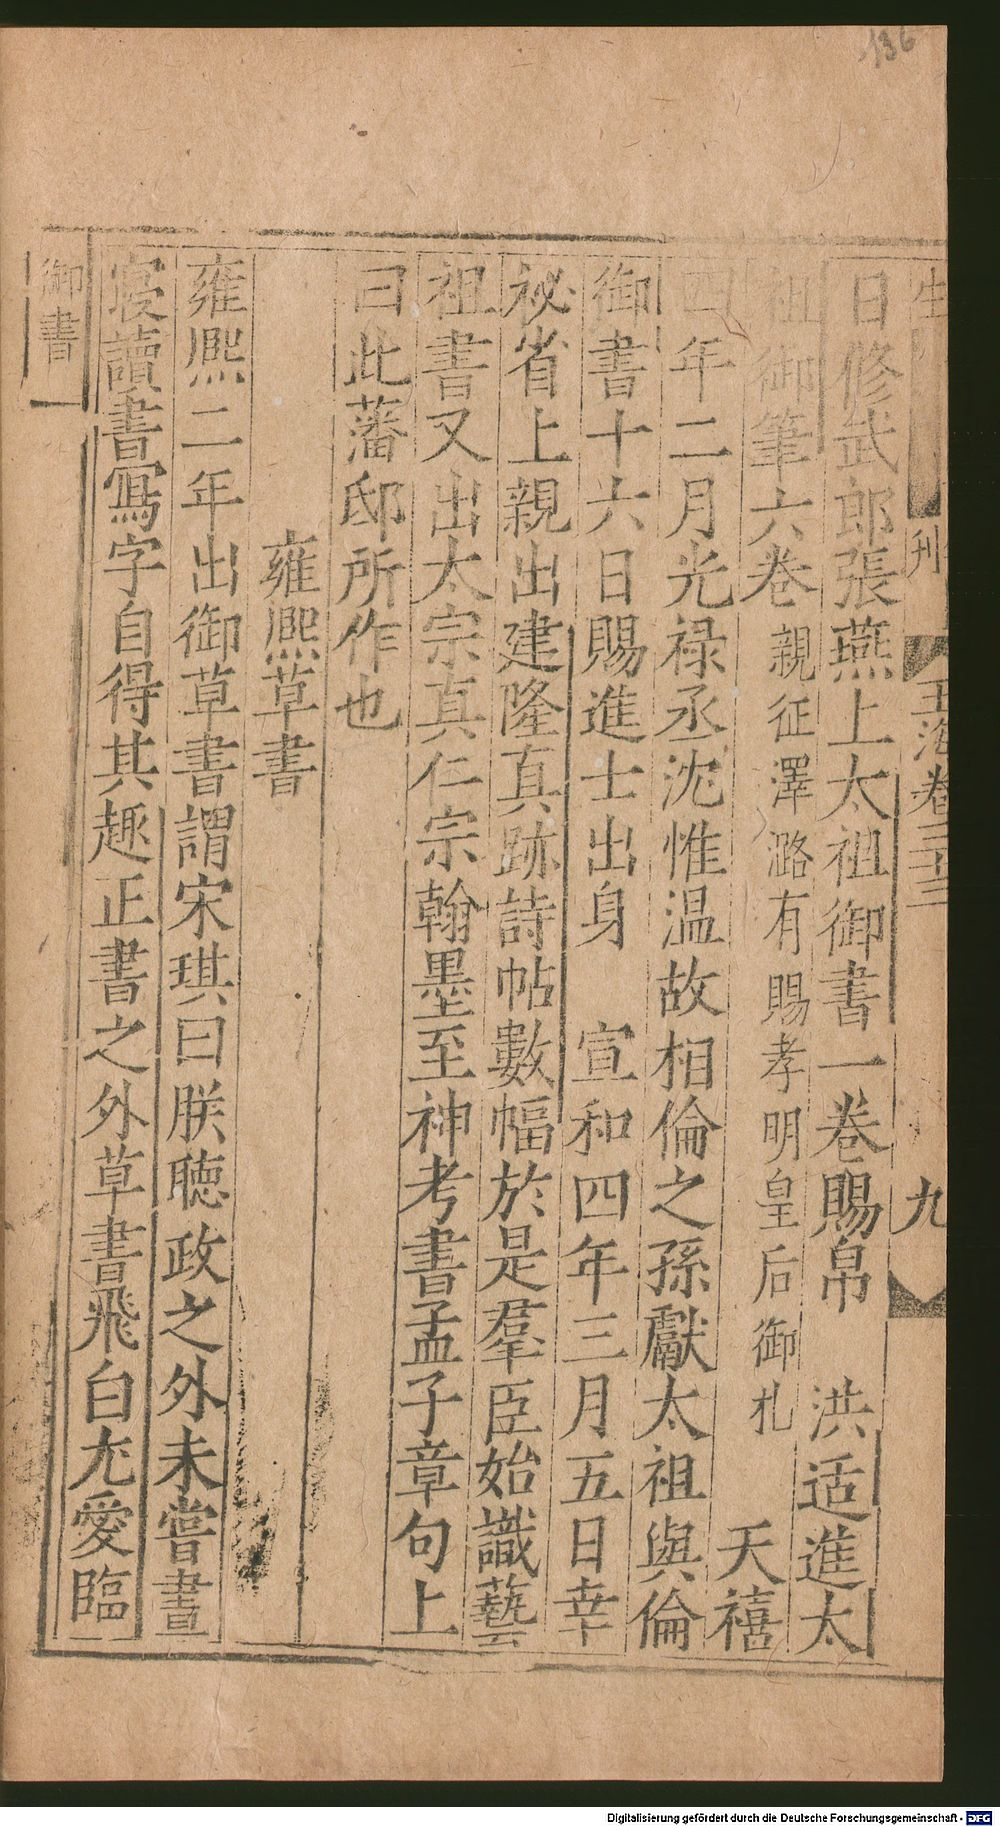 136
刊
玉海卷三十三
九
日修武郎張燕上太祖御書一卷賜帛　洪适進太
祖御筆六卷親征澤潞有賜孝明皇后御札　天禧
四年二月光祿丞沈惟温故相倫之孫獻太祖與倫
御書十六日賜進士出身　宣和四年三月五日幸
祕省上親出建隆真跡詩帖數幅於是羣臣始識藝
祖書又出太宗真仁宗翰墨至神考書孟子章句上
曰此藩邸所作也
雍熙草書
雍熙二年出御草書謂宋琪曰朕聴政之外未嘗晝
寑讀書寫字自得其趣正書之外草書飛白尤愛臨
御書
Digitalisierung gefördert durch die Deutsche Forschungsgemeinschaft - DFG